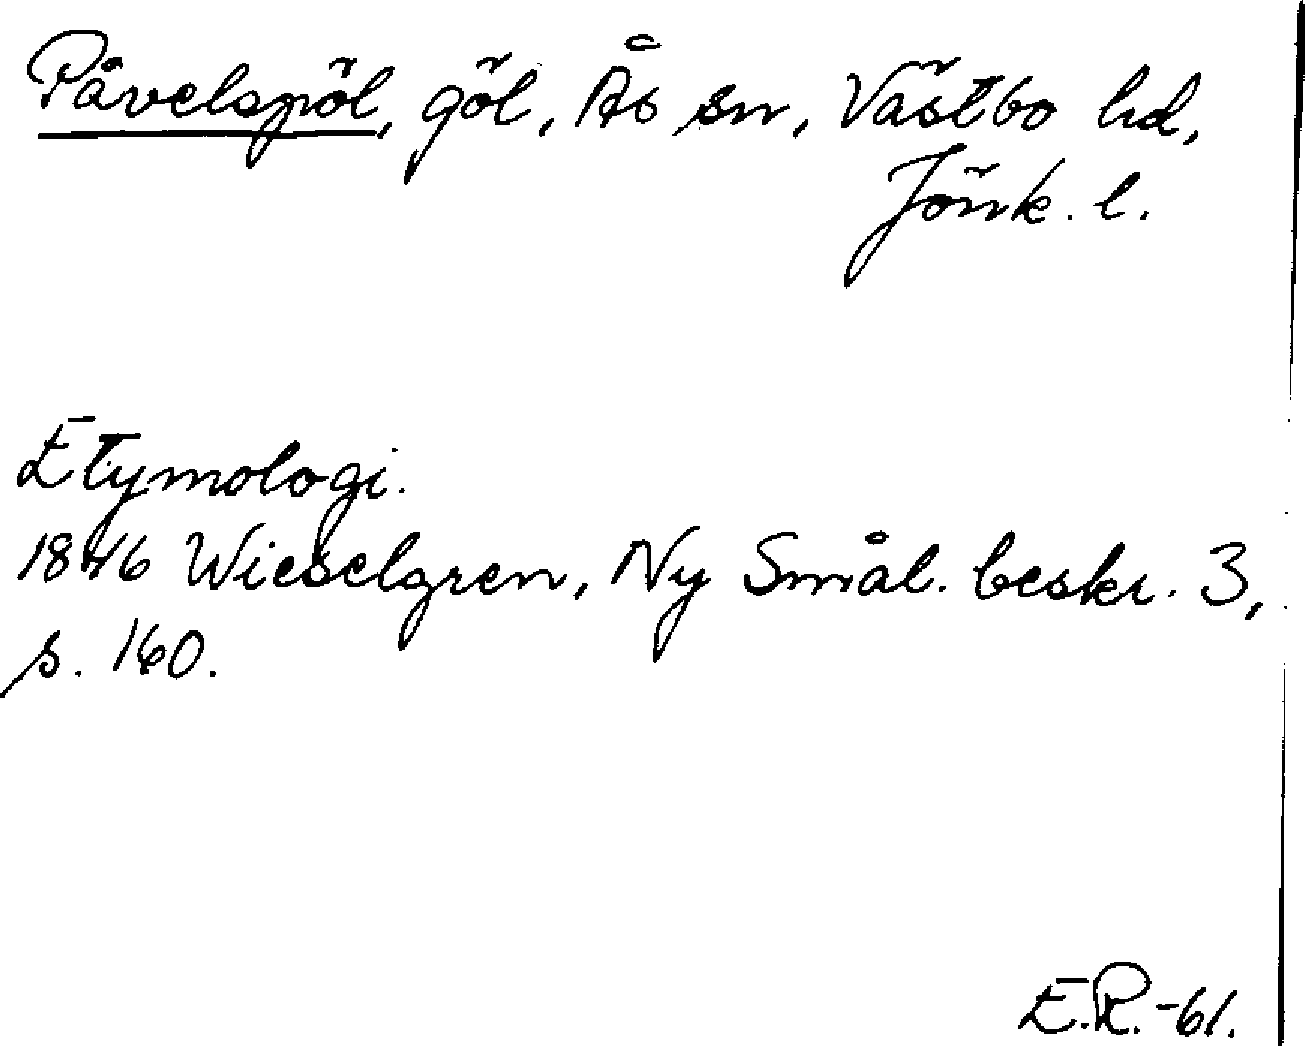 Påvelspöl, göl, Ås sn, Västbo hd,
Jönk. l.
Etymologi.
1846 Wieselgren, Ny Smål. beskr. 3,
s. 160.
E.R.-61.